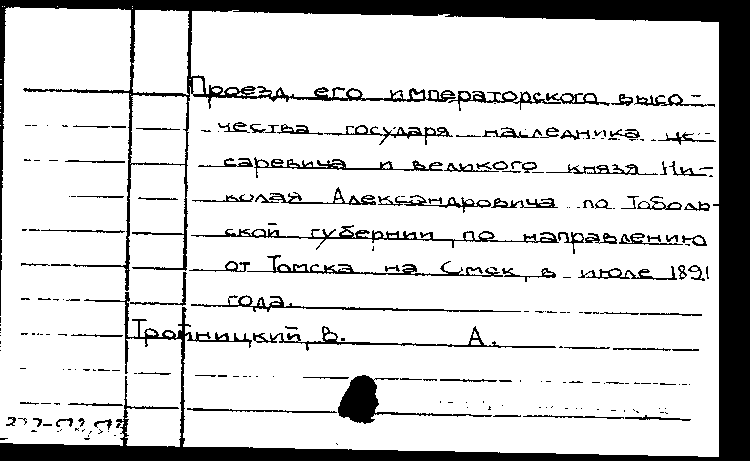 Проезд его императорского высо-
чества государя наследника це-
саревича и великого князя Ни-
колая Александровича по Тоболь-
ской губернии, по направлению
от Томска на Омск, в июле 1891
года.
Тройницкий, В. А.